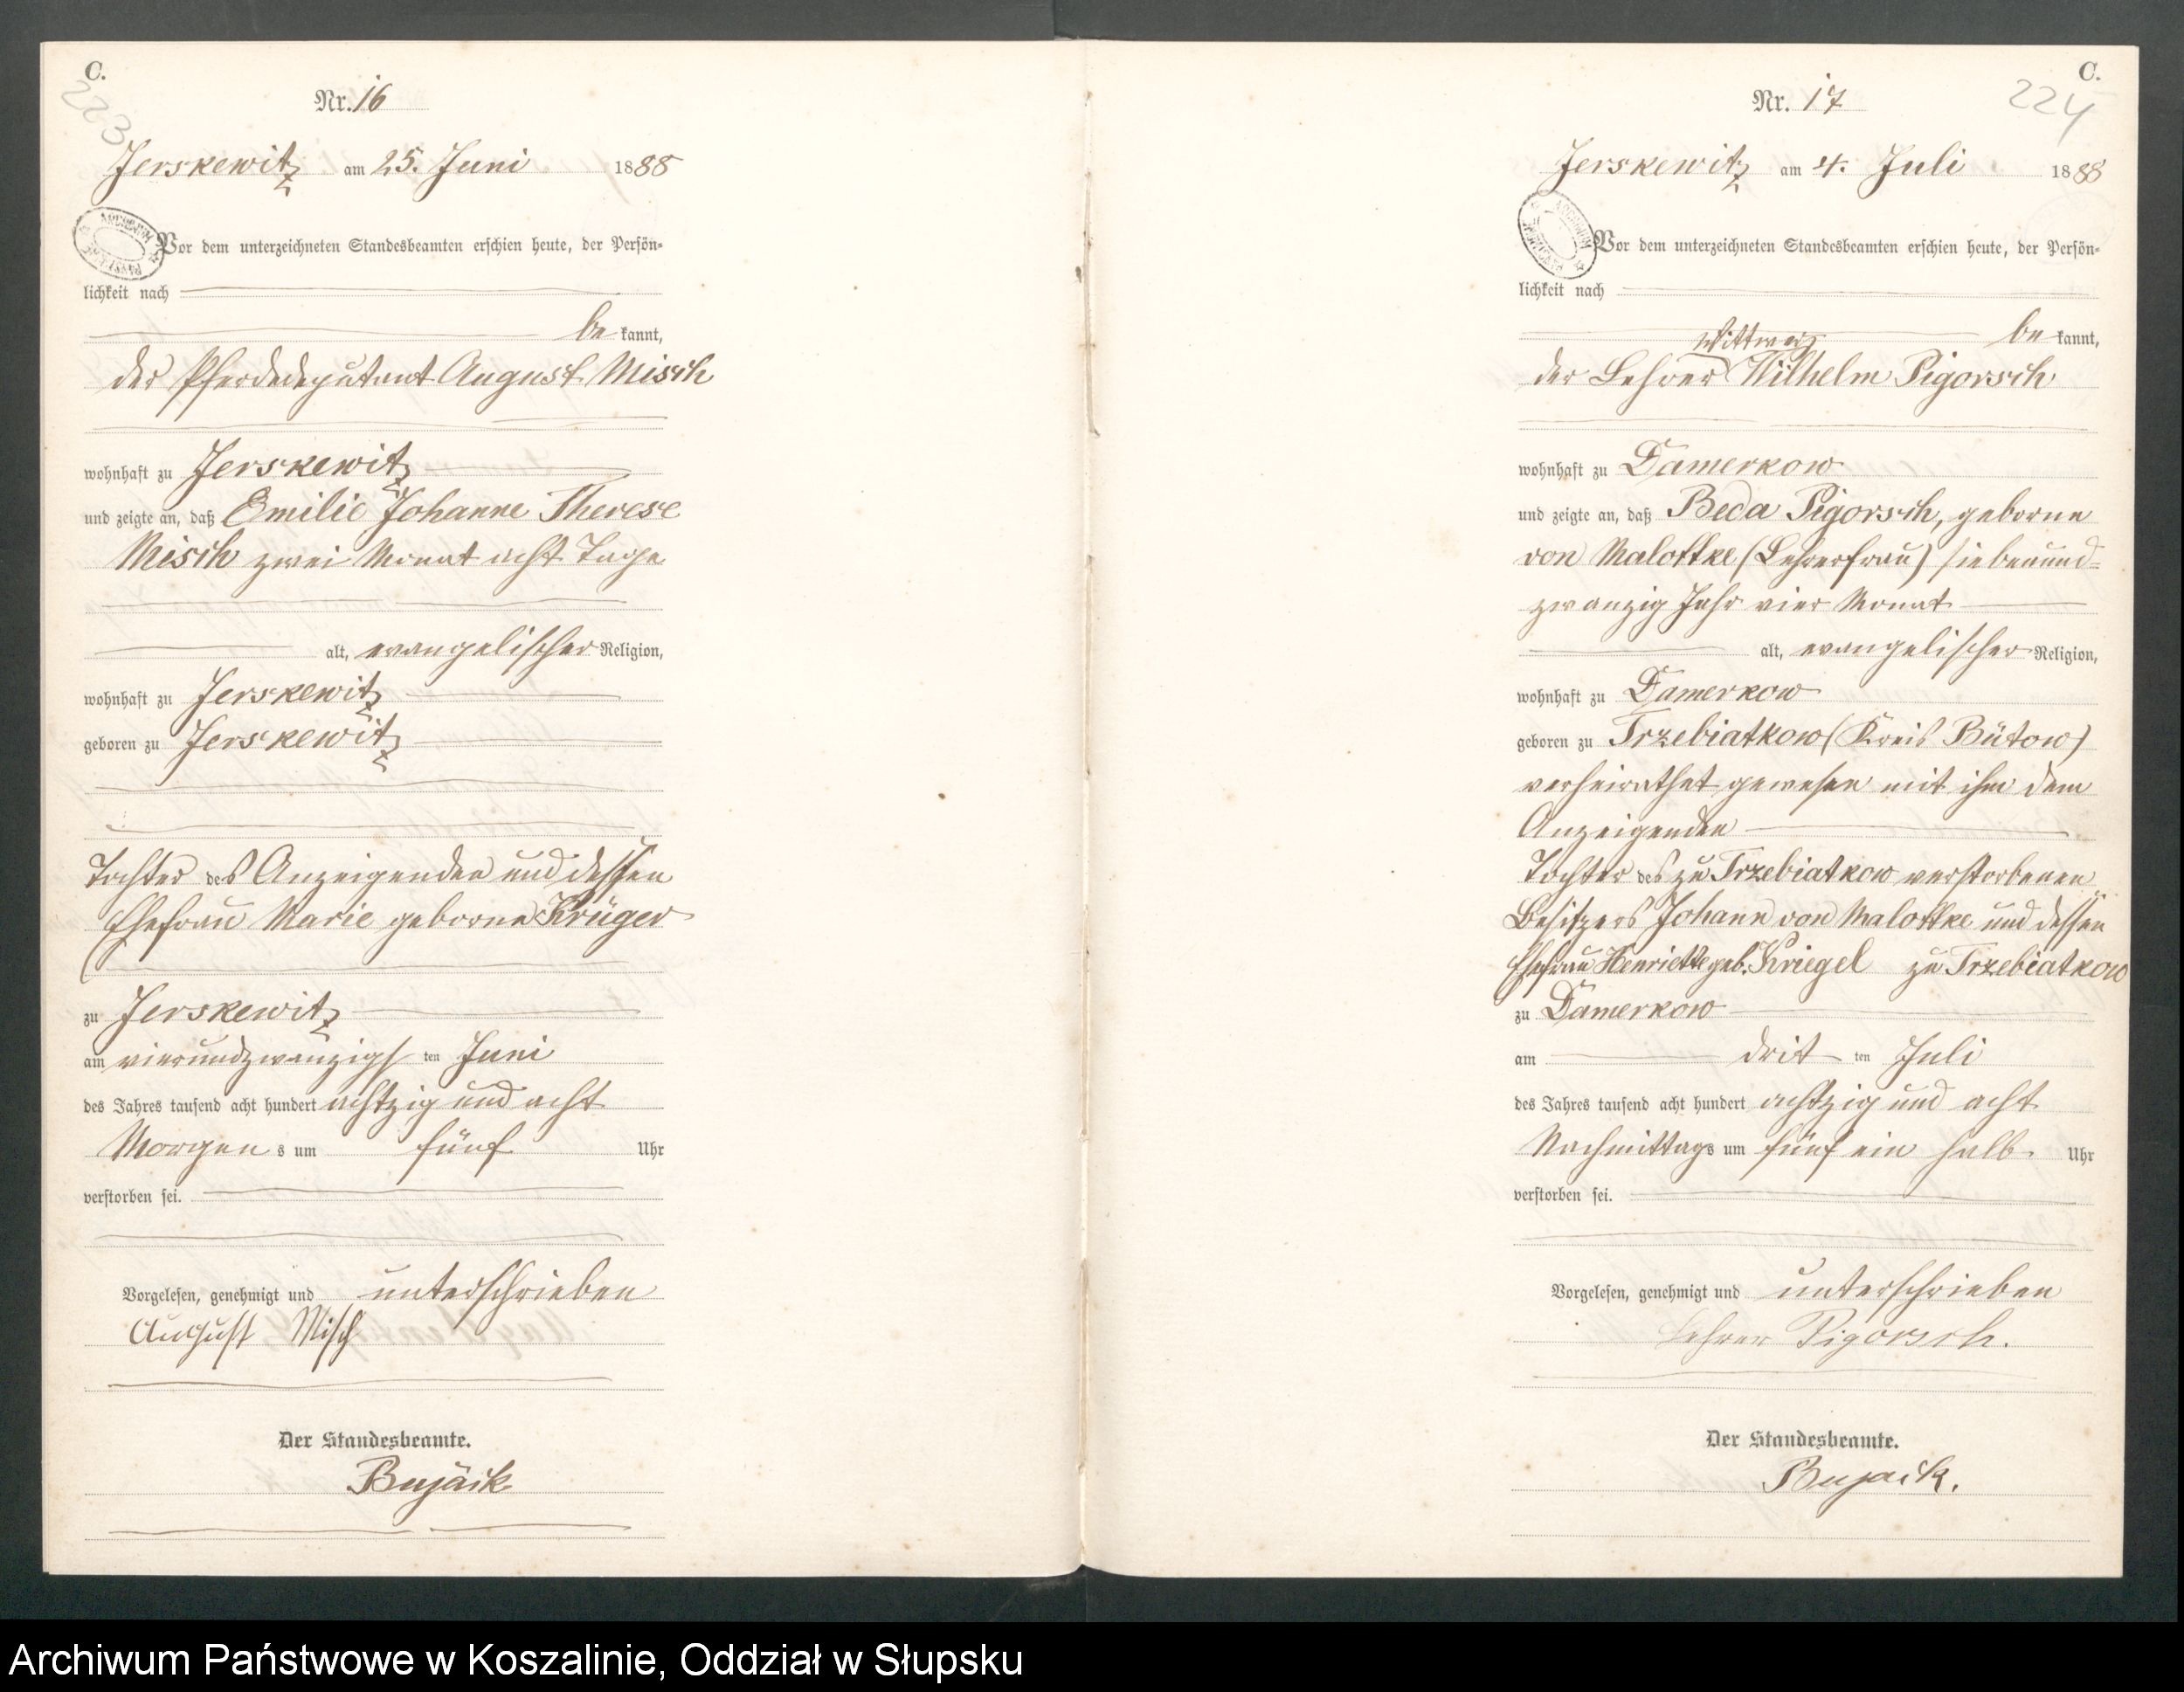 C.
223
Nr. 16
Jerskewitz am 25. Juni 1888
Vor dem unterzeichneten Standesbeamten erschien heute, der Persön-
lichkeit nach
be kannt,
der Pferdedeputant August Misch
wohnhaft zu Jerskewitz
und zeigte an, daß Emilie Johanne Therese
Misch zwei Monat acht Tage
alt, evangelischer Religion,
wohnhaft zu Jerskewitz
geboren zu Jerskewitz
Tochter des Anzeigenden und dessen
Ehefrau Marie geborne Krüger
zu Jerskewitz
am vierundzwanzigs ten Juni
des Jahres tausend acht hundert achtzig und acht
Morgen s um fünf Uhr
verstorben sei.
Vorgelesen, genehmigt und unterschrieben
August Misch
Der Standesbeamte.
Bujäck
C.
224
Nr. 17
Jerskewitz am 4. Juli 1888
Vor dem unterzeichneten Standesbeamten erschien heute, der Persön-
lichkeit nach
be kannt,
Wittwer
der Lehrer Wilhelm Pigorsch
wohnhaft zu Damerkow
und zeigte an, daß Beda Pigorsch, geborne
von Malottke (Lehrerfrau) siebenund-
zwanzig Jahr vier Monat
alt, evangelischer Religion,
wohnhaft zu Damerkow
geboren zu Trzebiatkow (Kreis Bütow)
verheirathet gewesen mit ihm dem
Anzeigenden
Tochter des zu Trzebiatkow verstorbenen
Besitzers Johann von Malottke und dessen
Ehefrau Henriette geb. Kriegel zu Trzebiatkow
zu Damerkow
am drit ten Juli
des Jahres tausend acht hundert achtzig und acht
Nachmittags um fünf ein halb Uhr
verstorben sei.
Vorgelesen, genehmigt und unterschrieben
Lehrer Pigorsch.
Der Standesbeamte.
Bujack.
Archiwum Państwowe w Koszalinie, Oddział w Słupsku